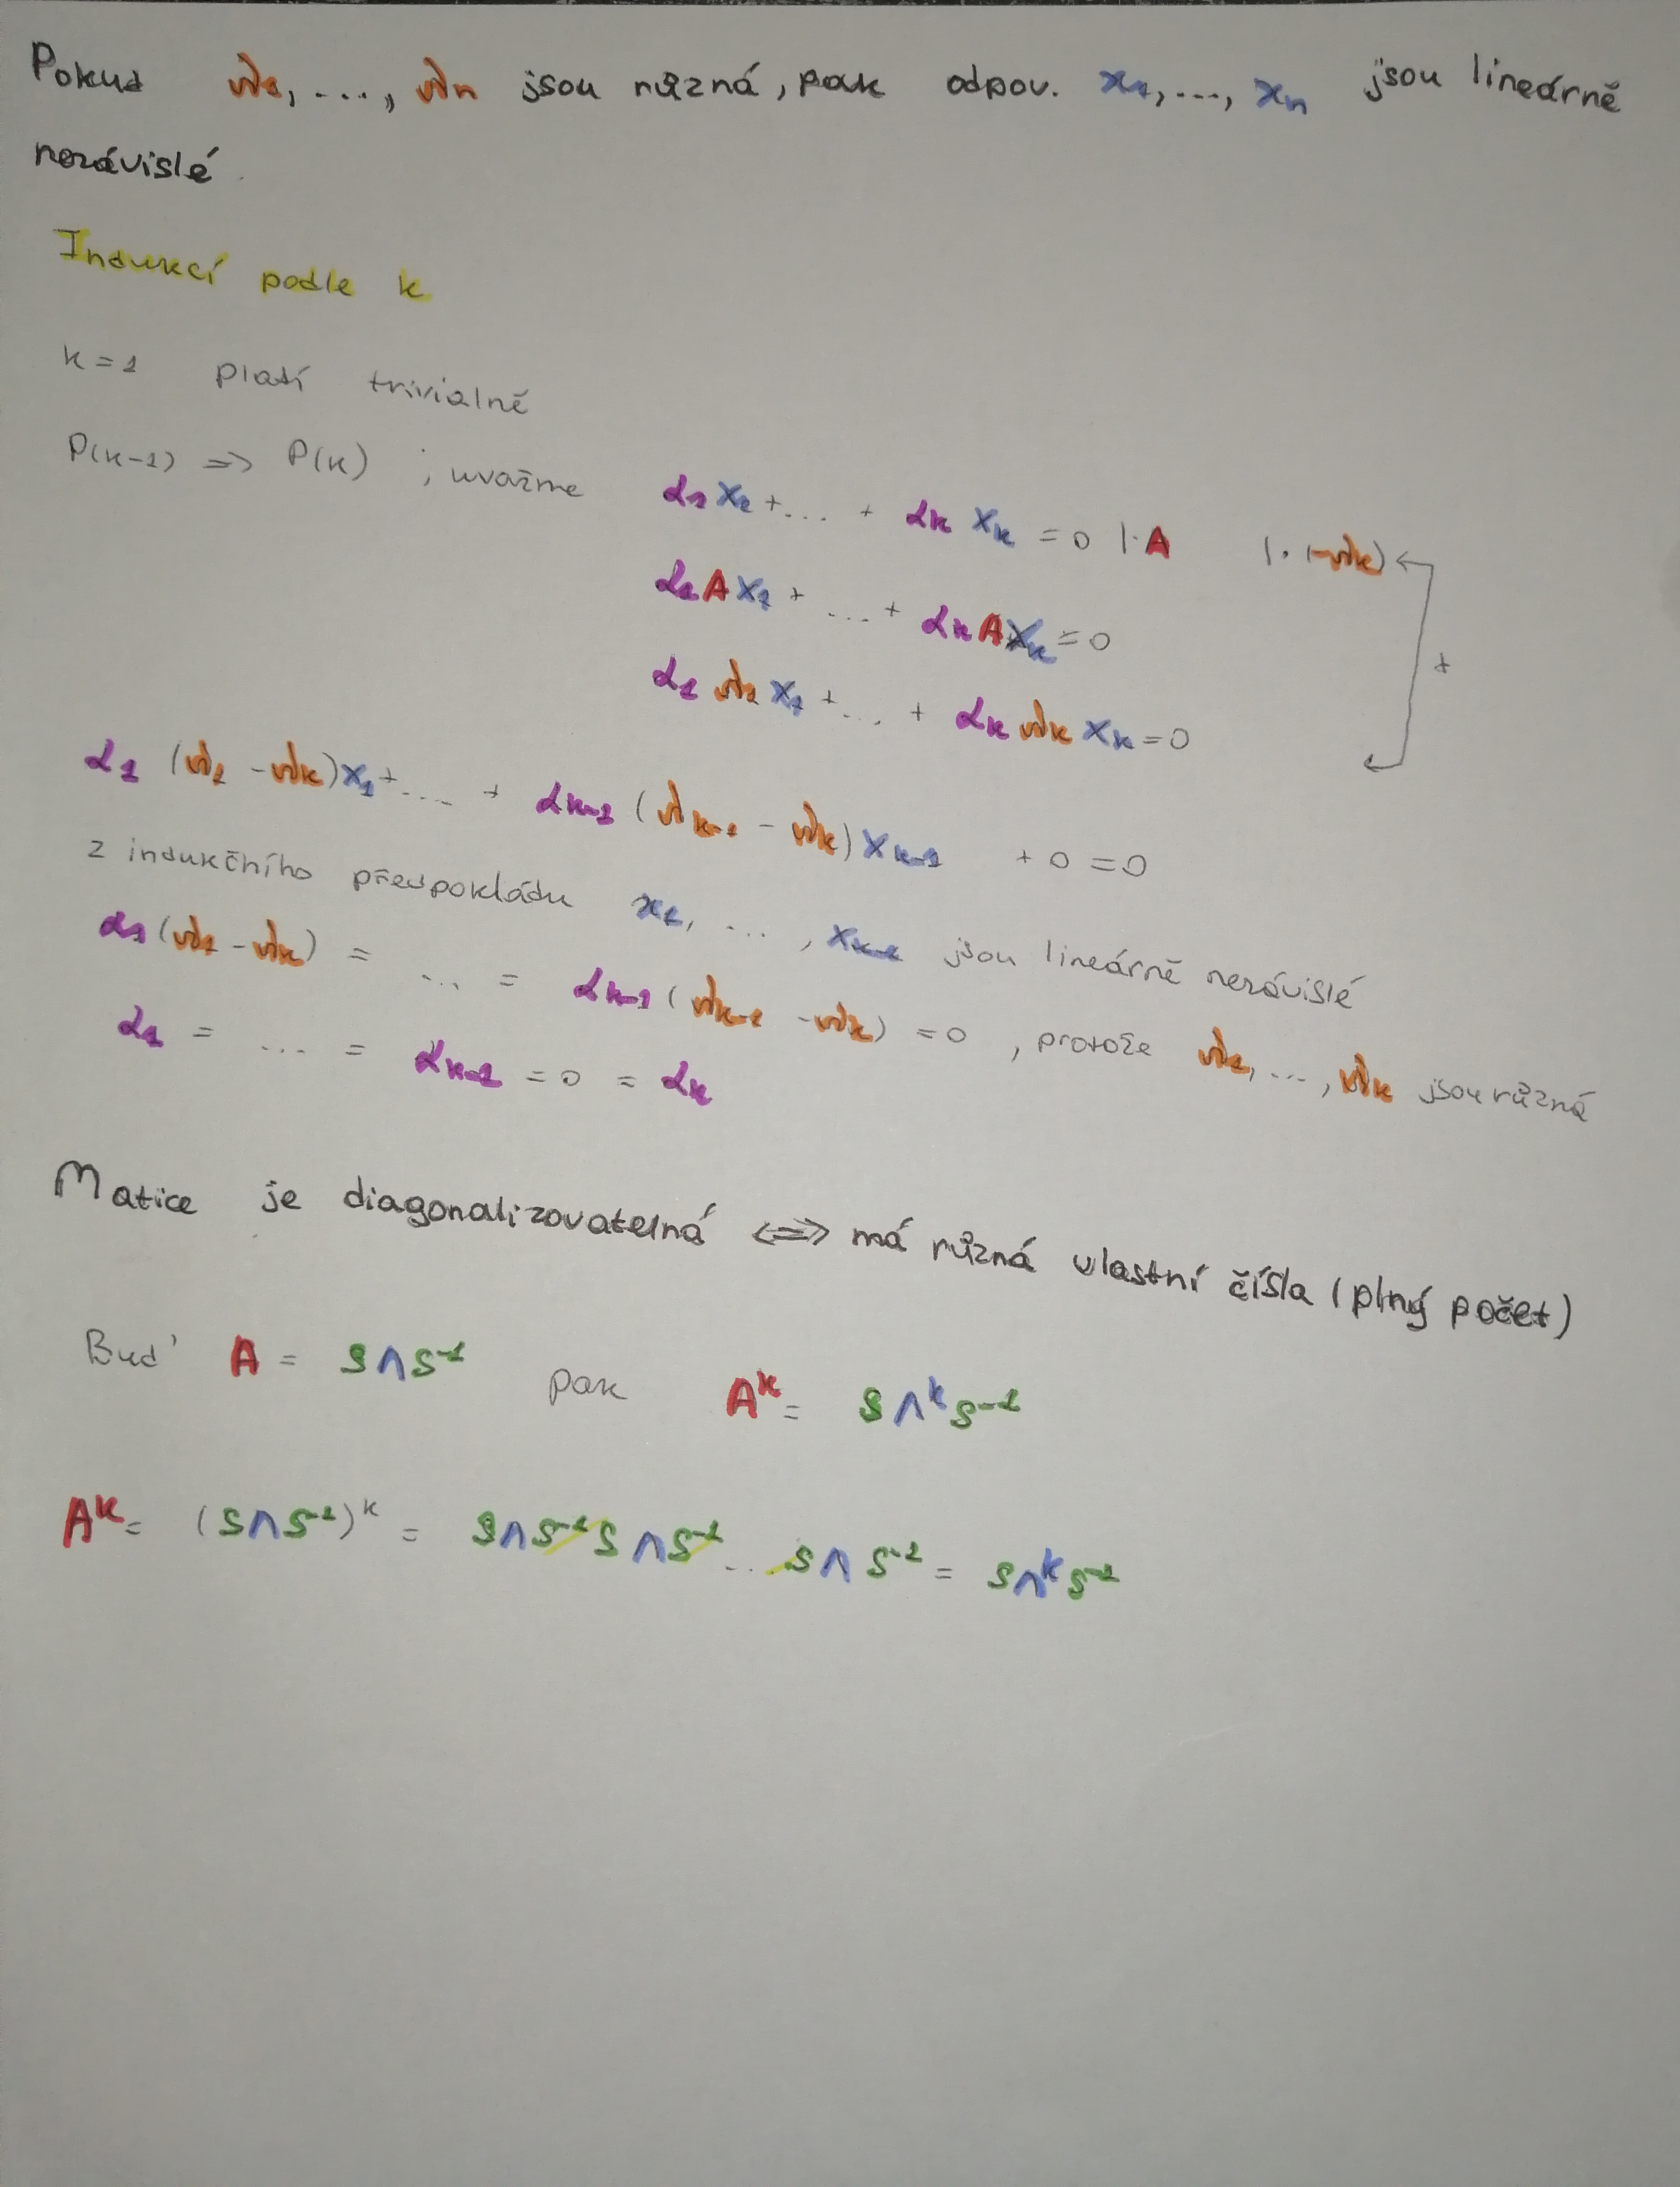 Pokud λ₁, ..., λₙ jsou různá, pak odpov. x₁, ..., xₙ jsou lineárně
nezávislé.
Indukcí podle k
k = 1 platí trivialně
P(k-1) => P(k) ; uvažme α₁x₁ + ... + αₖxₖ = 0 |·A |·(-λₖ)
α₁Ax₁ + ... + αₖAxₖ = 0
+
α₁λ₁x₁ + ... + αₖλₖxₖ = 0
α₁(λ₁ - λₖ)x₁ + ... + αₖ₋₁(λₖ₋₁ - λₖ)xₖ₋₁ + 0 = 0
z indukčního předpokládu x₁, ..., xₖ₋₁ jsou lineárně nezávislé
α₁(λ₁ - λₖ) = ... = αₖ₋₁(λₖ₋₁ - λₖ) = 0, protože λ₁, ..., λₖ jsou různá
α₁ = ... = αₖ₋₁ = 0 = αₖ
Matice je diagonalizovatelná <=> má různá vlastní čísla (plný počet)
Buď A = SΛS⁻¹ pak Aᵏ = SΛᵏS⁻¹
Aᵏ = (SΛS⁻¹)ᵏ = SΛS⁻¹SΛS⁻¹...SΛS⁻¹ = SΛᵏS⁻¹